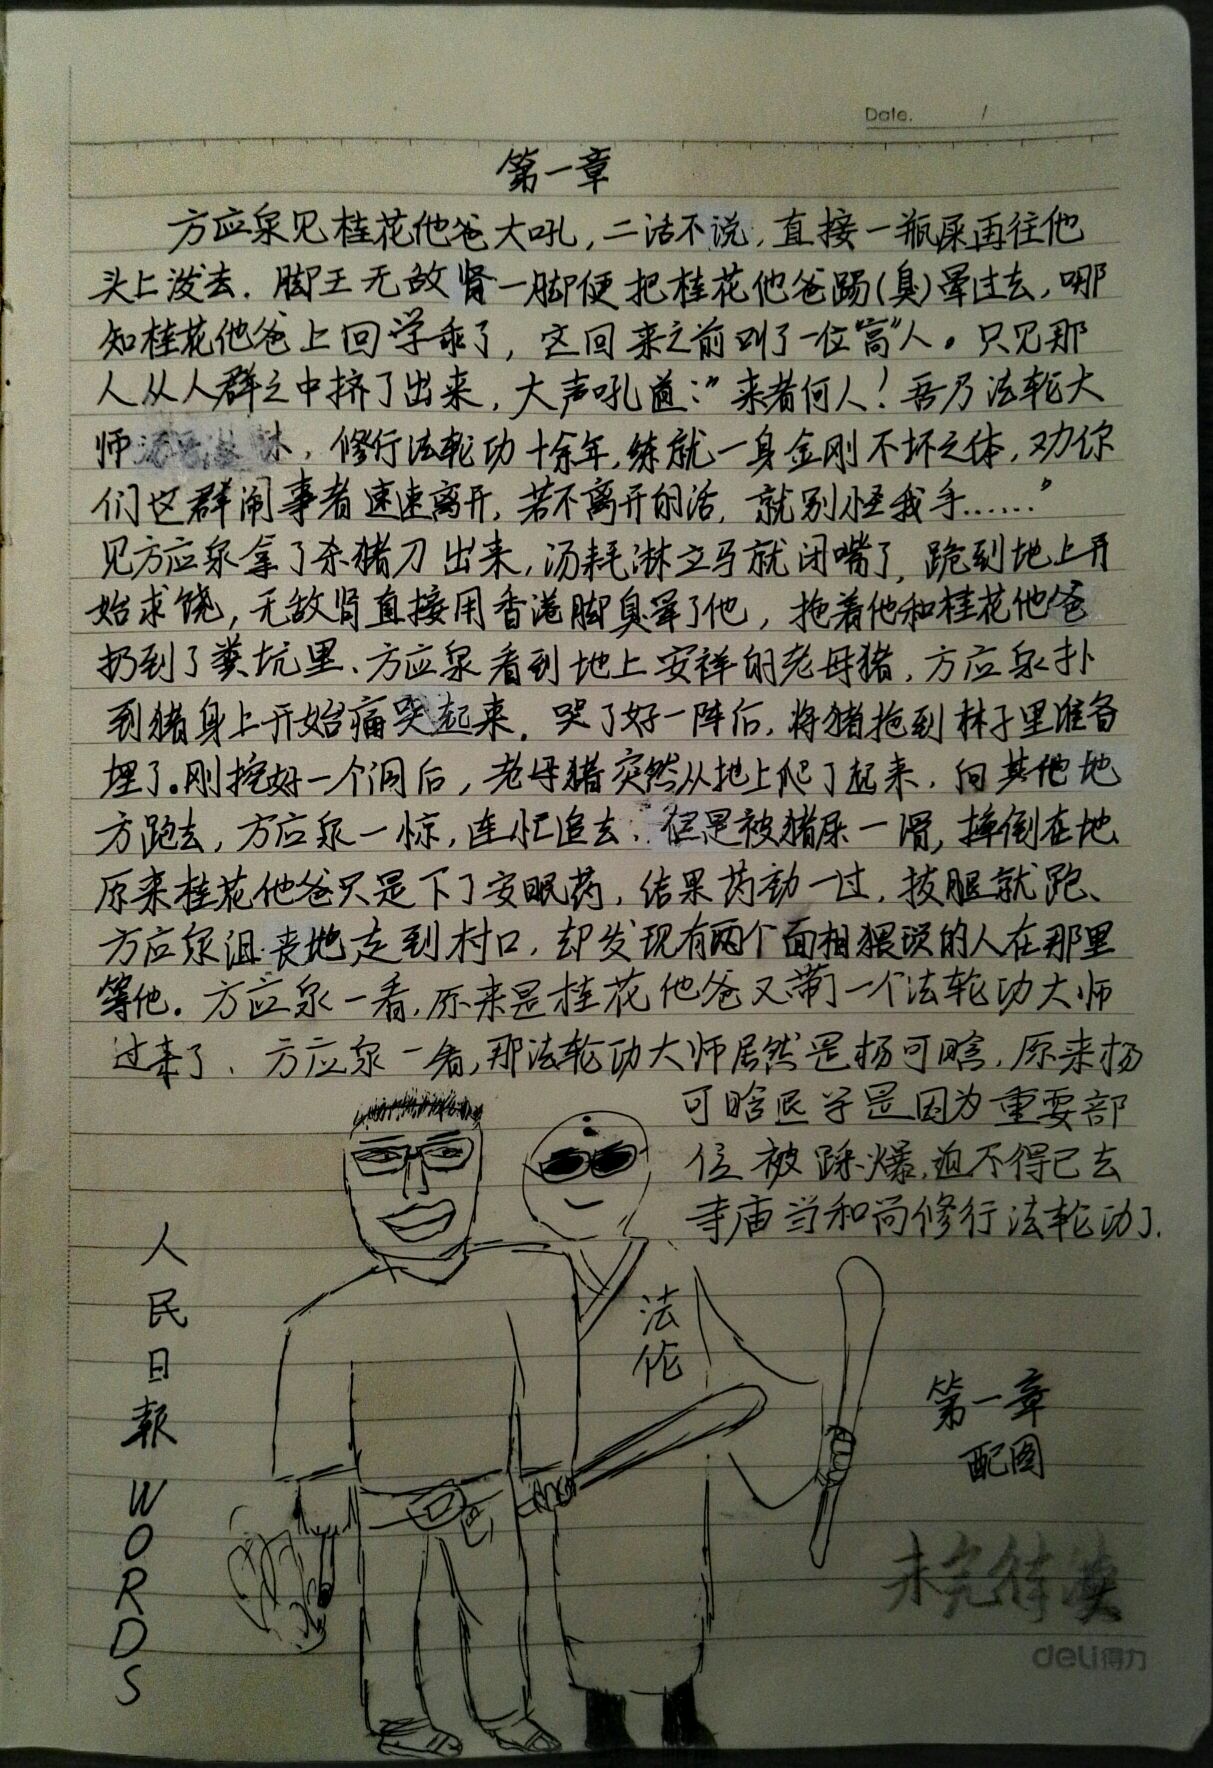 Date. /
第一章
方应泉见桂花他爸大吼,二话不说,直接一瓶尿再往他
头上泼去.脚王无敌肾一脚便把桂花他爸踢(臭)晕过去,哪
知桂花他爸上回学乖了,这回来之前叫了一位"高"人。只见那
人从人群之中挤了出来,大声吼道:"来者何人!吾乃法轮大
师 ,修行法轮功十余年,练就一身金刚不坏之体,劝你
们这群闹事者速速离开,若不离开的话,就别怪我手……"
见方应泉拿了杀猪刀出来,汤耗淋立马就闭嘴了,跪到地上开
始求饶,无敌肾直接用香港脚臭晕了他,拖着他和桂花他爸
扔到了粪坑里、方应泉看到地上安祥的老母猪,方应泉扑
到猪身上开始痛哭起来.哭了好一阵后,将猪拖到林子里准备
埋了。刚挖好一个洞后,老母猪突然从地上爬了起来,向其他地
方跑去,方应泉一惊,连忙追去.但是被猪尿一滑,摔倒在地.
原来桂花他爸只是下了安眠药,结果药劲一过,拔腿就跑、
方应泉沮丧地走到村口,却发现有两个面相猥琐的人在那里
等他.方应泉一看,原来是桂花他爸又带了一个法轮功大师
过来了、方应泉一看,那法轮功大师居然是杨可晗,原来杨
可晗退学是因为重要部
位被踩爆,迫不得已去
寺庙当和尚修行法轮功了.
人民日報 WORDS
法伦
第一章
配图
未完待续
deli得力